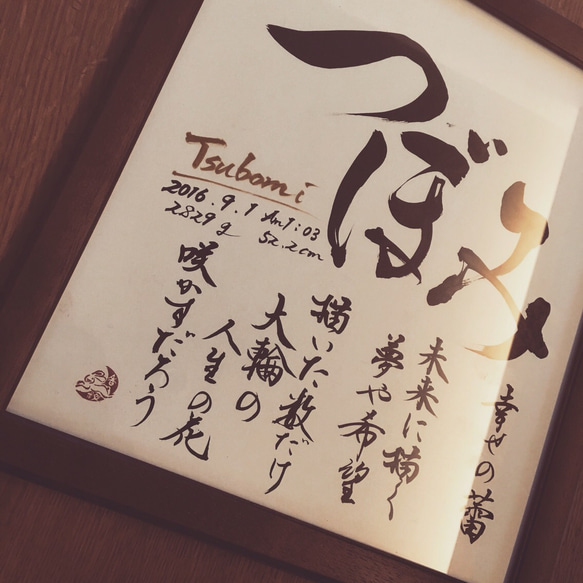 つぼみ
Tsubomi
2016.9.1 Am1:03
2829g 52.2cm
幸せの蕾
未来に描く
夢や希望
描いた数だけ
大輪の
人生の花
咲かすだろう